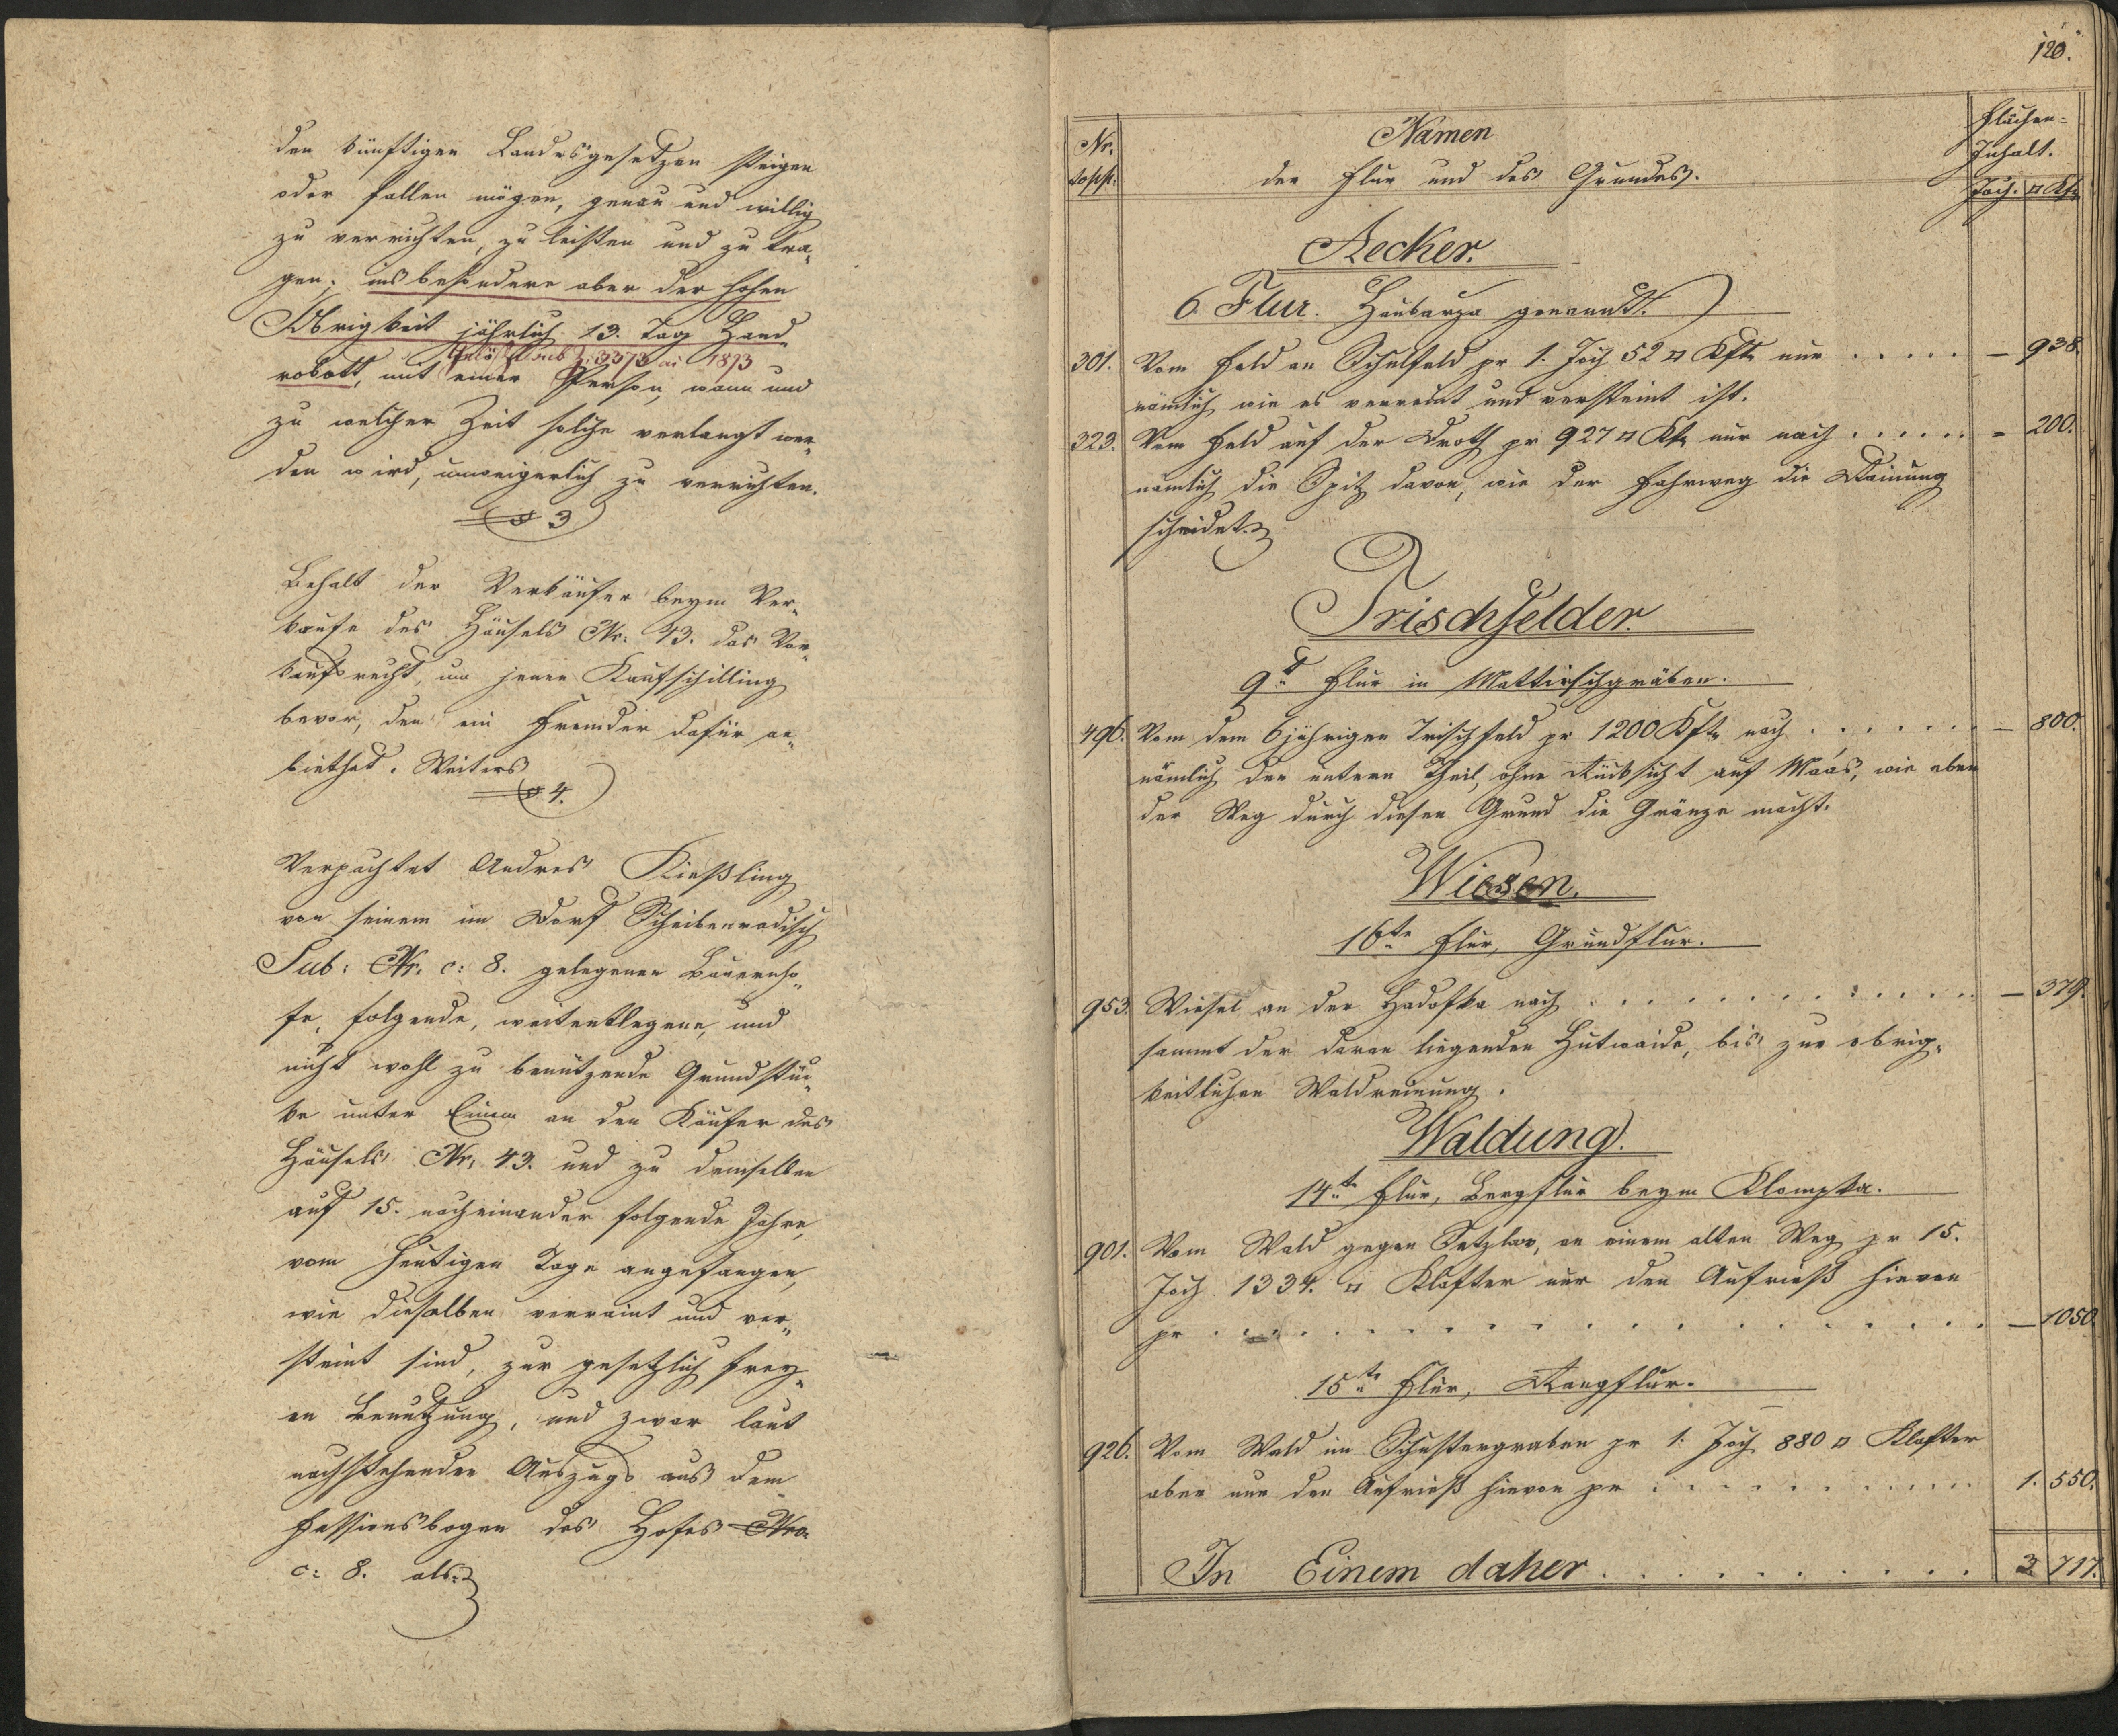 den künftigen Landesgesetzen steigen
oder fallen mögen, genau und willig
zu verrichten, zu leisten und zu tra„
gen; insbesondere aber der hohen
Obrigkeit jährlich 13. Tag Hand„
Gelöscht sub Z: 3373 in 1873
robott, mit einer Person, wann und
zu welcher Zeit solche verlangt wer„
den wird, unweigerlich zu verrichten.
§ 3
Behalt der Verkäufer beym Ver„
kaufe des Häusels Nr. 43. das Vor„
kaufsrecht, um jenen Kaufschilling
bevor, den ein Fremder dafür an„
biethet. Weiters
§ 4.
Verpachtet Andres Kießling
von seinem im Dorf Scheibenradisch
Sub: Nr. c: 8. gelegenen Bauernho„
fe, folgende, weitentlegene, und
nicht wohl zu benützende Grundstü„
ke unter Einem an den Käufer des
Häusels Nr. 43. und zu demselben
auf 15. nacheinander folgende Jahre,
vom heutigen Tage angefangen,
wie dieselben verraint und ver„
steint sind, zur gesetzlich frey„
en Benutzung, und zwar laut
nachstehenden Auszugs aus dem
Fassionsbogen des Hofes Nro
c: 8. als:
120.
Nr. topp.
Namen
der Flur und des Grundes.
Flächen-
Inhalt.
Joch. □ Kft.
Aecker.
6. Flur. Haubarza genannt.
301. Vom Feld am Schulfeld pr 1. Joch 52 □ Kftr nur . . . . . — 938.
nämlich wie es verraint und versteint ist.
323. Vom Feld auf der Droth pr 927 □ Kft. nur nach . . . . . . — 200.
nämlich die Spitz davon, wie der Fahrweg die Rainung
scheidet.
Trischfelder.
9te Flur in Mattirschgräben.
496. Vom dem 6jährigen Trischfeld pr 1200 Kftr nach . . . . . . — 800.
nämlich der untere Theil, ohne Rücksicht auf Maas, wie eben
der Weg durch diesen Grund die Gränze macht.
Wiesen.
16te Flur, Grundflur.
953. Wiesel an der Hadofka nach . . . . . . . . . . — 379.
sammt der daran liegenden Hutwaide, bis zur obrig„
keitlichen Waldreinung.
Waldung.
14te Flur, Bergflur beym Klompka.
901. Vom Wald gegen Setzlar, an einem alten Weg pr 15.
Joch 1334. □ Klafter nur den Aufrieß hievon
pr . . . . . . . . . . . . . . . . — 1050
15te Flur, Rangflur.
926. Vom Wald im Schustergraben pr 1. Joch 880 □ Klafter
aber nur den Aufrieß hievon pr . . . . . . . . . . 1. 550.
In Einem daher . . . . . . . . . . 3 717.